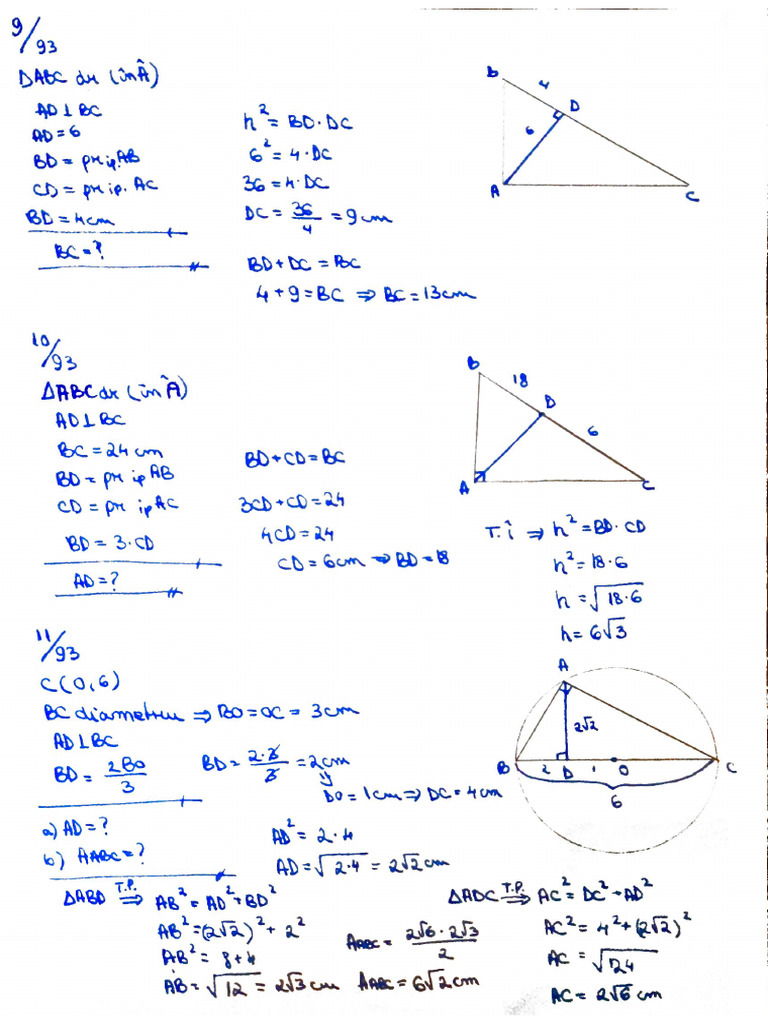 9/93
ΔABC dr (în Â)
AD⊥BC
AD=6
BD = pr ip. AB
CD = pr ip. AC
BD = 4cm
BC = ?
h² = BD·DC
6² = 4·DC
36 = 4·DC
DC = 36/4 = 9cm
BD+DC = BC
4+9 = BC ⇒ BC = 13cm
B
4
D
6
A
C
10/93
ΔABC dr (în Â)
AD⊥BC
BC = 24 cm
BD = pr ip AB
CD = pr ip AC
BD = 3·CD
AD = ?
BD+CD = BC
3CD+CD = 24
4CD = 24
CD = 6cm ⇒ BD = 18
B
18
D
6
A
C
T.î ⇒ h² = BD·CD
h² = 18·6
h = √18·6
h = 6√3
11/93
C(O,6)
BC diametru ⇒ BO = OC = 3cm
AD⊥BC
BD = 2BO/3
BD = 2·3/3 = 2cm
⇓
DO = 1cm ⇒ DC = 4cm
a) AD = ?
b) AABC = ?
AD² = 2·4
AD = √2·4 = 2√2 cm
A
2√2
B
2
D
1
O
C
6
ΔABD T.P. ⇒ AB² = AD²+BD²
AB² = (2√2)²+2²
AB² = 8+4
AB = √12 = 2√3 cm
AABC = 2√6·2√3/2
AABC = 6√2 cm
ΔADC T.P. ⇒ AC² = DC²+AD²
AC² = 4²+(2√2)²
AC = √24
AC = 2√6 cm